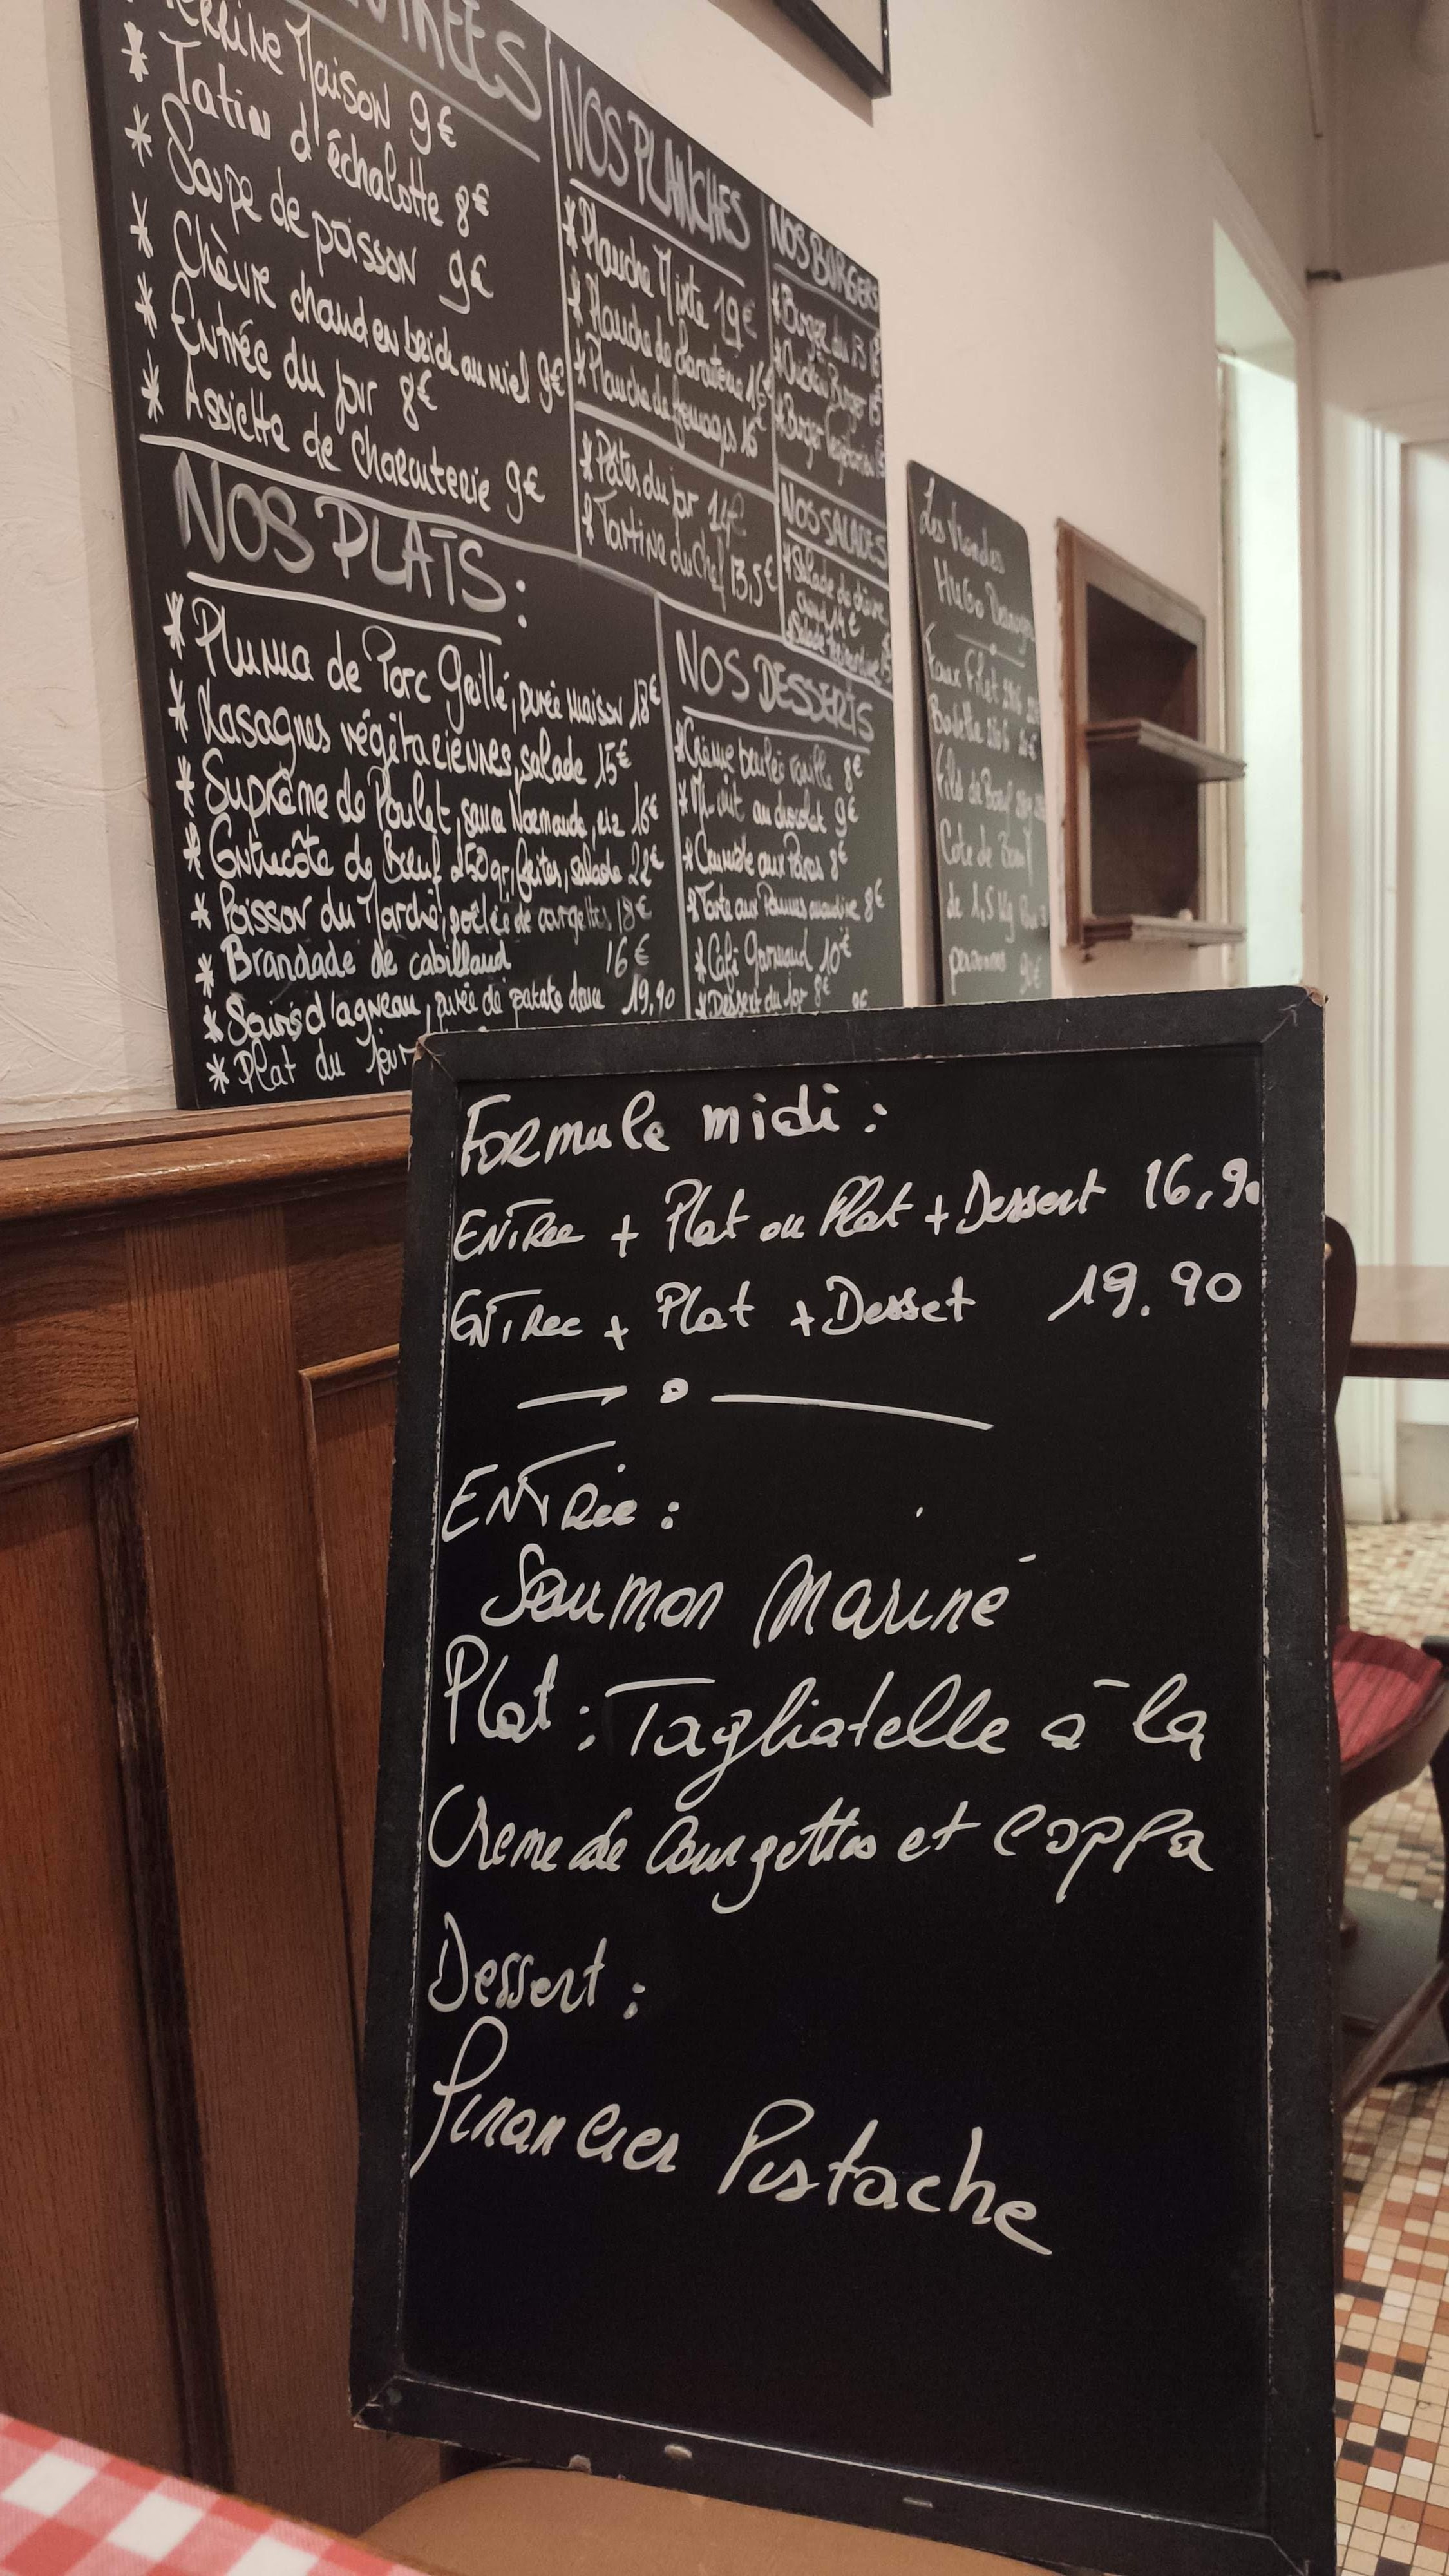 Maison 9€
* Tatin d'échalotte 8€
* Soupe de poisson 9€
* Chèvre chaud en brick au miel 9€
* Entrée du Jour 8€
* Assiette de charcuterie 9€
NOS PLATS:
* Pluma de Porc Grillé, purée maison 18€
* Lasagnes végétariennes, salade 15€
* Suprême de Poulet, sauce Normande, riz 16€
* Entrecôte de Bœuf 250gr, frites, salade 22€
* Poisson du Marché, poêlée de courgettes 18€
* Brandade de cabillaud 16€
* Souris d'agneau, purée de patate douce 19,90
* Plat du Jour
NOS PLANCHES
* Planche Mixte 19€
* Planche de charcuterie 16€
* Planche de fromages 16€
* Pâtes du jour 14€
* Tartine du Chef 13,5€
NOS BURGERS
* Burger du 13
* Chicken Burger 15
* Burger Végétarien
NOS SALADES
* Salade de chèvre
chaud 14€
* Salade
NOS DESSERTS
* Crème brulée vanille 8€
* Mi-cuit au chocolat 9€
* aux Poires 8€
* Tarte aux Pommes 8€
* Café Gourmand 10€
* Dessert du Jour 8€
Les Viandes
HUGO
Faux Filet
Bavette
Filet de Bœuf
Cote de Bœuf
de 1,5 kg
personnes 90€
Formule midi :
Entree + Plat ou Plat + Dessert 16,90
Entree + Plat + Desset 19.90
Entrée :
Saumon Mariné
Plat : Tagliatelle à la
Creme de Courgettes et Coppa
Dessert :
Financier Pistache